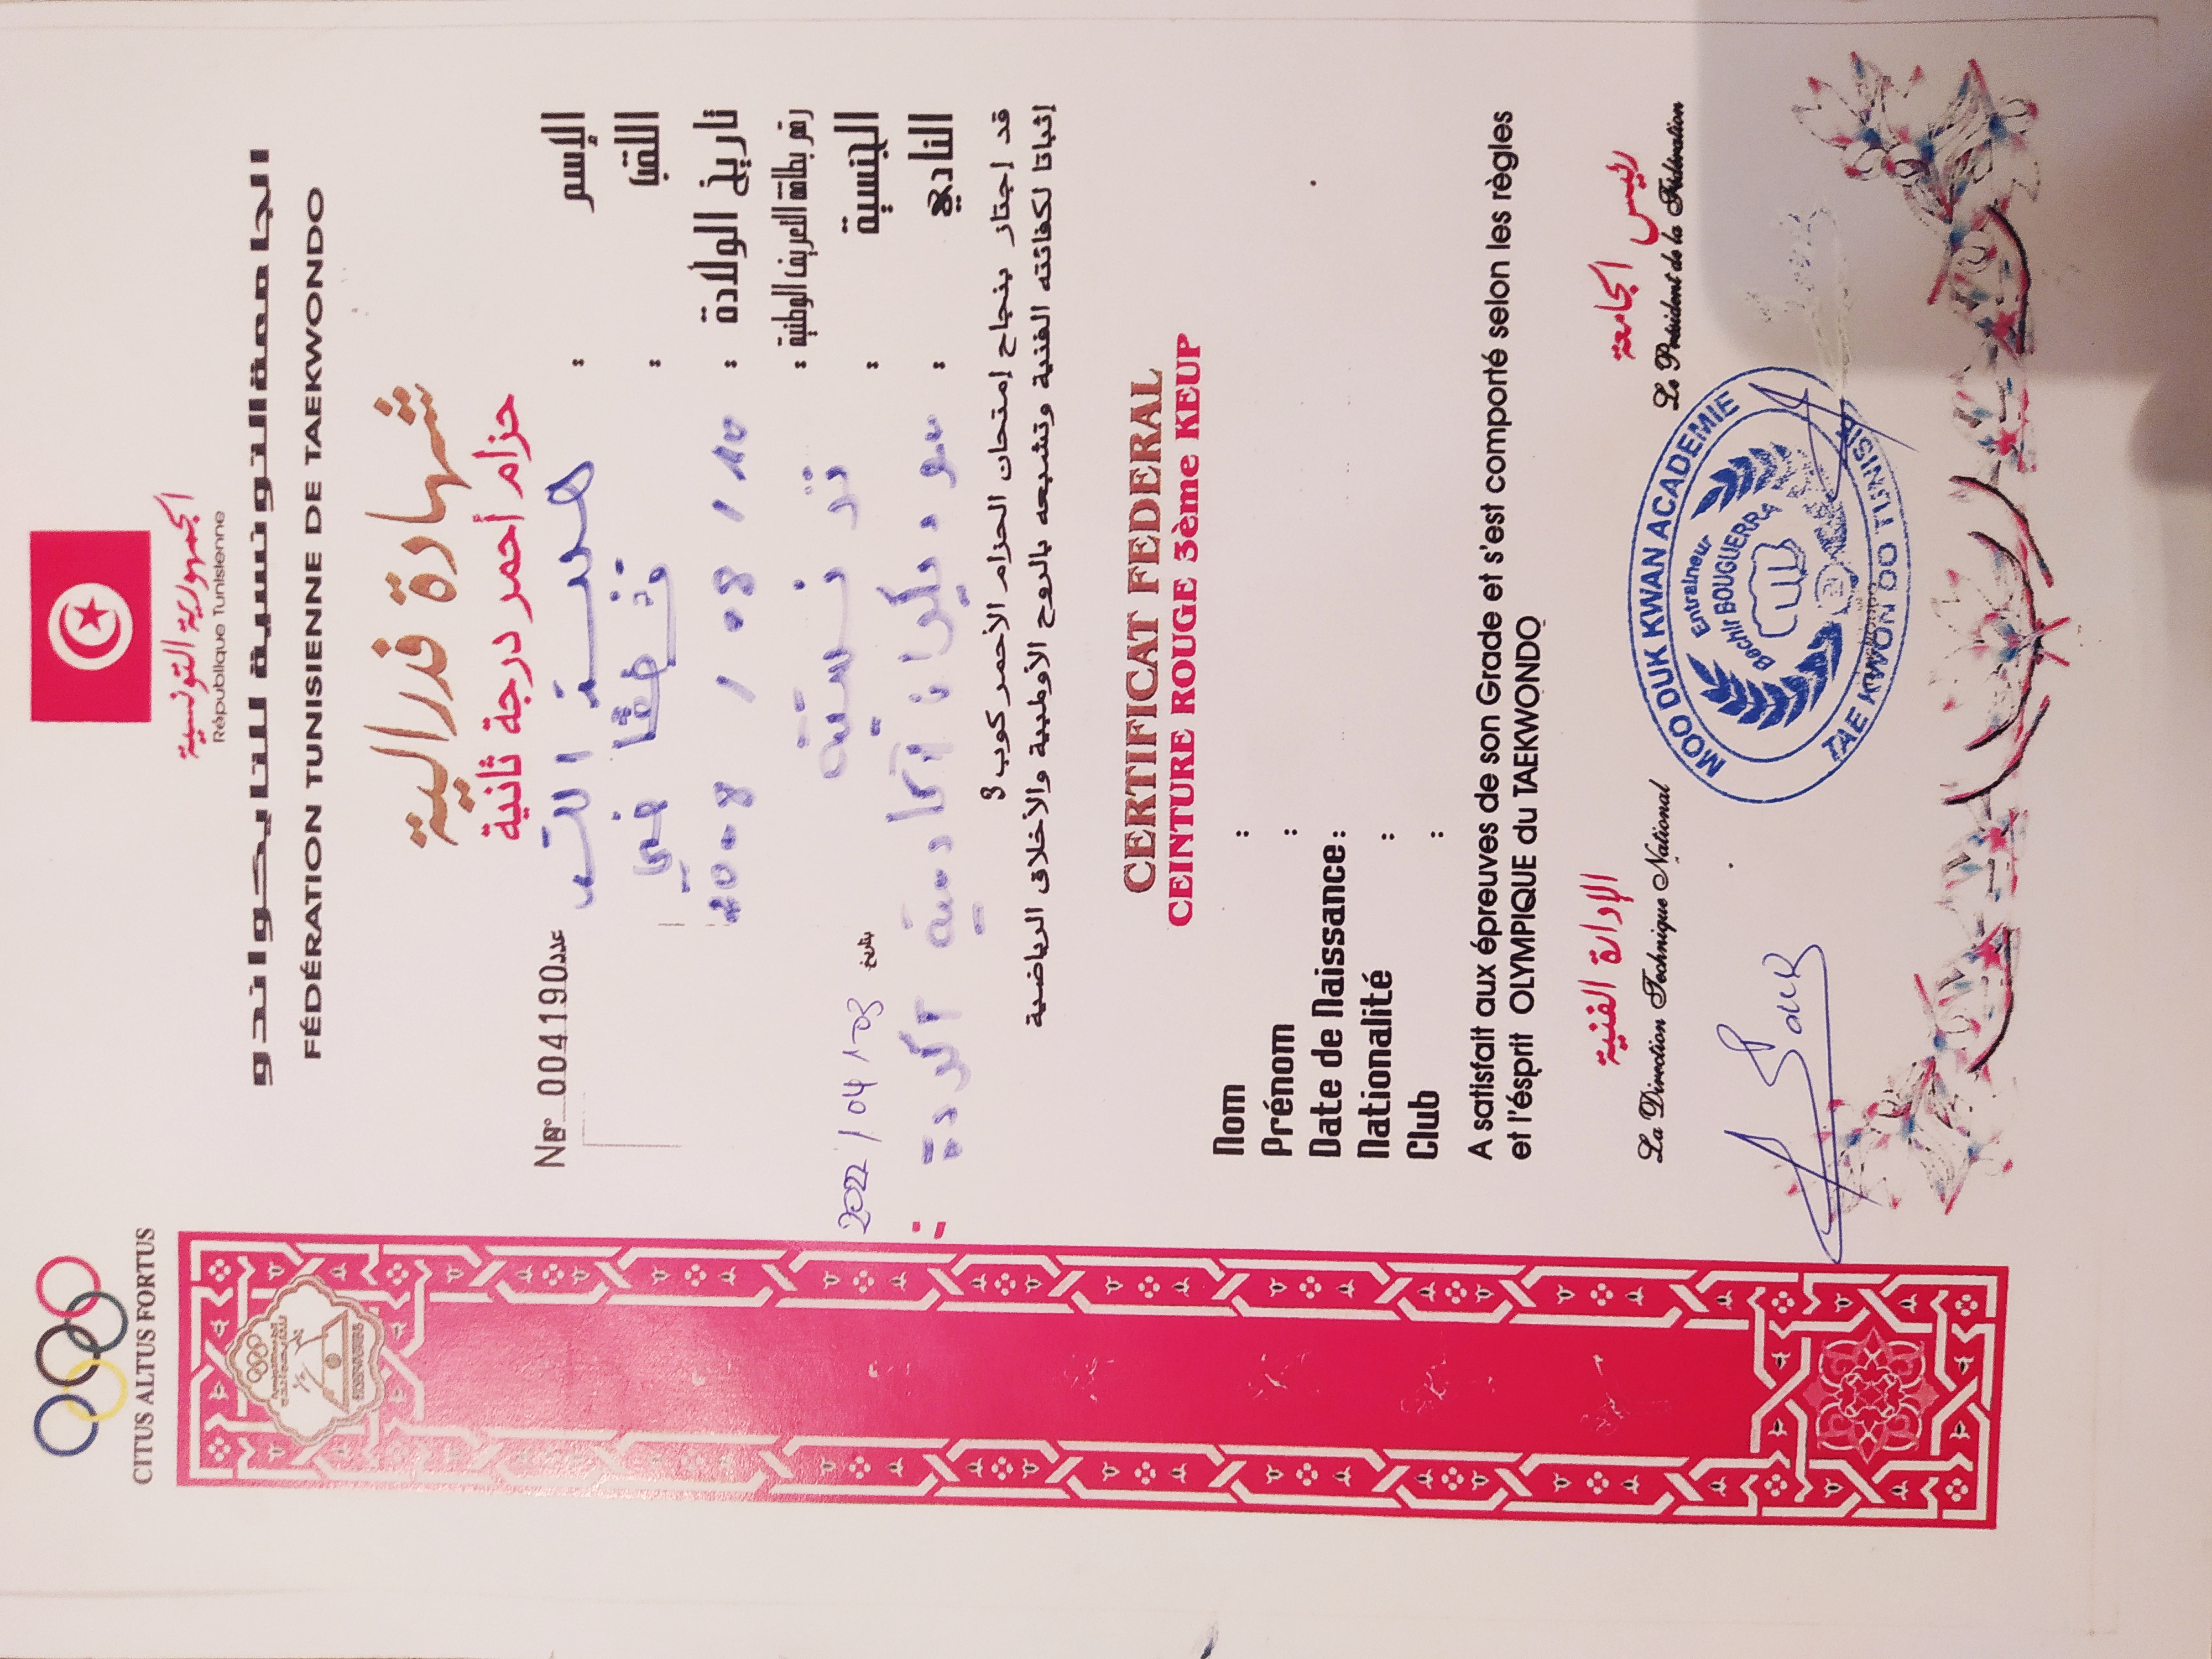 CITUS ALTUS FORTUS
الجمهورية التونسية
République Tunisienne
الجامعة التونسية للتايكواندو
FÉDÉRATION TUNISIENNE DE TAEKWONDO
شهادة فدرالية
حزام أحمر درجة ثانية
Nº 004190 عدد
الإسم : هبة الله
اللقب :
تاريخ الولادة : 10 / 08 / 2008
رقم بطاقة التعريف الوطنية :
الجنسية : تونسية
بتاريخ 2022 / 04 / 03
النادي :
قد إجتاز بنجاح إمتحان الحزام الأحمر كوب 3
إثباتا لكفائته الفنية وتشبعه بالروح الأولمبية والأخلاق الرياضية
CERTIFICAT FEDERAL
CEINTURE ROUGE 3ème KEUP
Nom :
Prénom :
Date de Naissance :
Nationalité :
Club :
A satisfait aux épreuves de son Grade et s'est comporté selon les règles
et l'ésprit OLYMPIQUE du TAEKWONDO
الإدارة الفنية
La Direction Technique National
رئيس الجامعة
Le Président de la Fédération
MOO DUK KWAN ACADEMIE
Entraineur
Bechir BOUGUERRA
TAE KWON DO TUNISIE